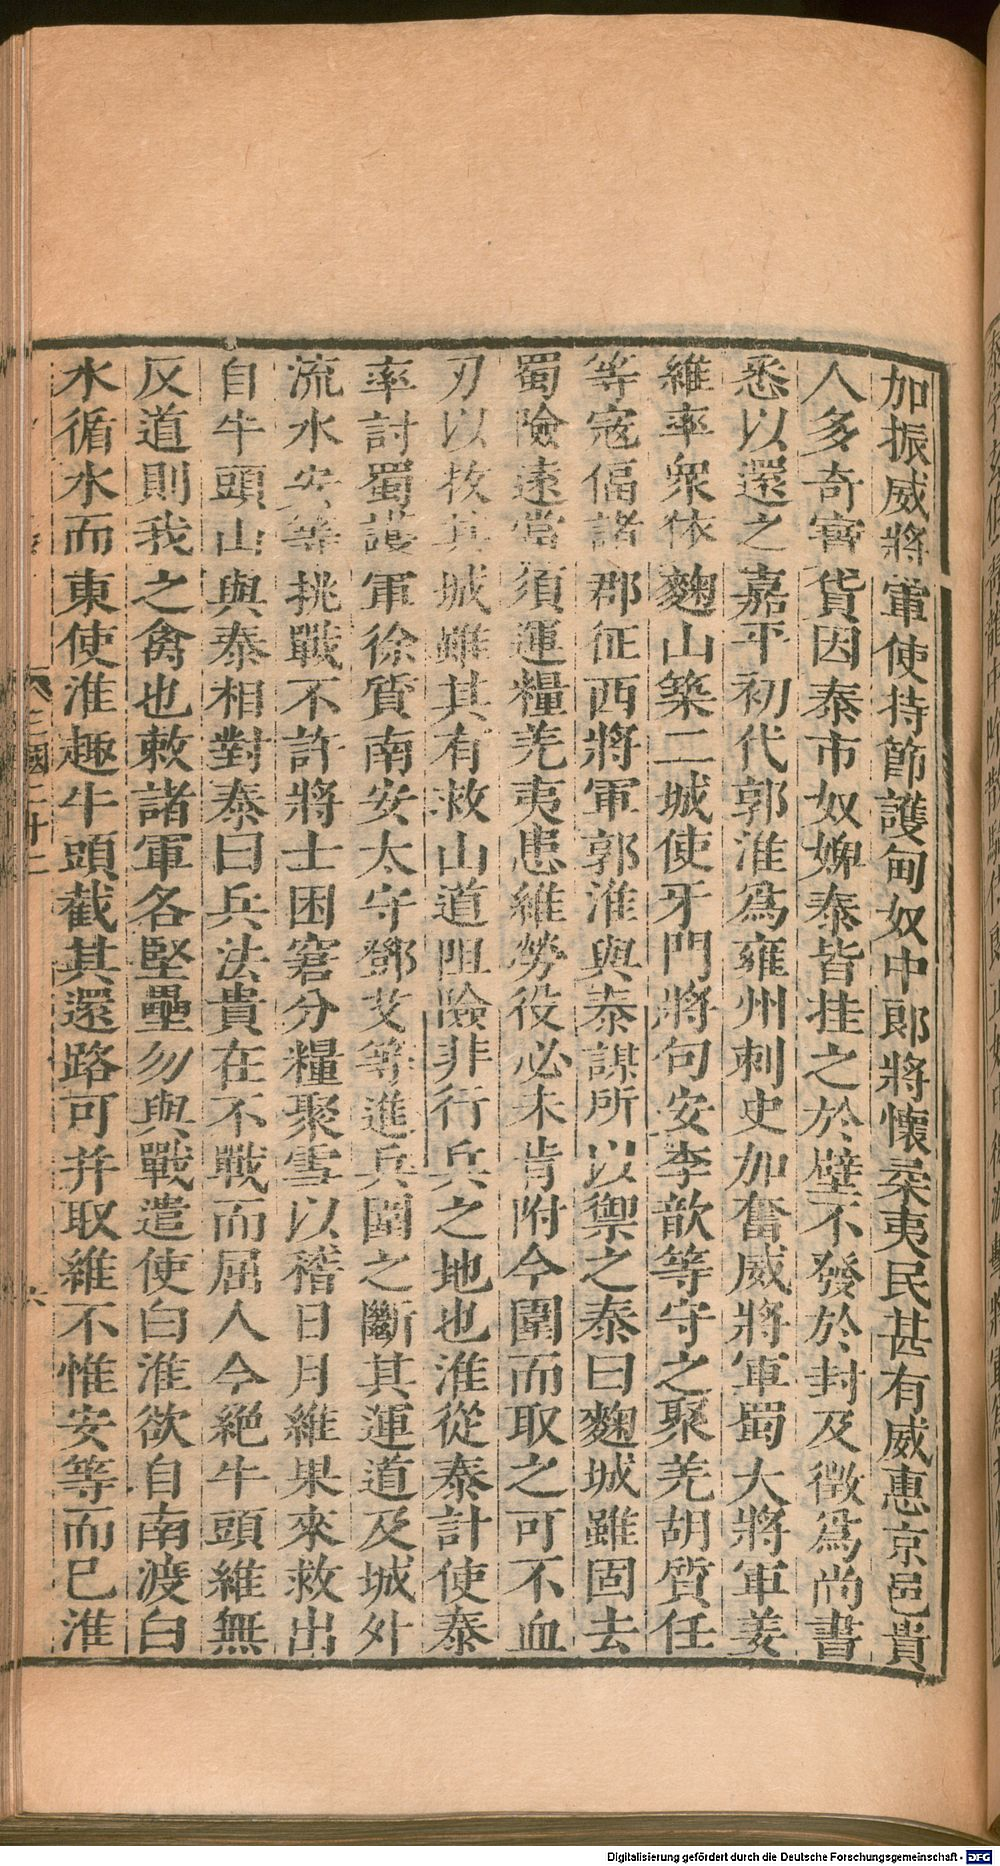 加振威將軍使持節護匈奴中郎將懷柔夷民甚有威惠京邑貴
人多奇寳貨因泰市奴婢泰皆挂之於壁不發於封及徵爲尚書
悉以還之嘉平初代郭淮爲雍州刺史加奮威將軍蜀大將軍姜
維率衆依麴山築二城使牙門將句安李歆等守之聚羌胡質任
等寇偪諸郡征西將軍郭淮與泰謀所以禦之泰曰麴城雖固去
蜀險遠當須運糧羌夷患維勞役必未肯附今圍而取之可不血
刃以拔其城雖其有救山道阻險非行兵之地也淮從泰計使泰
率討蜀護軍徐質南安太守鄧艾等進兵圍之斷其運道及城外
流水安等挑戰不許將士困窘分糧聚雪以稽日月維果來救出
自牛頭山與泰相對泰曰兵法貴在不戰而屈人今絶牛頭維無
反道則我之禽也敕諸軍各堅壘勿與戰遣使白淮欲自南渡白
水循水而東使淮趣牛頭截其還路可并取維不惟安等而已淮
三國二十二
六
Digitalisierung gefördert durch die Deutsche Forschungsgemeinschaft - DFG